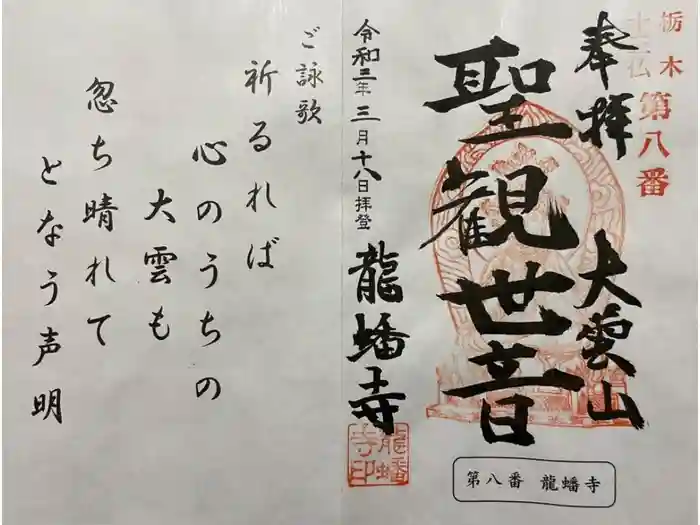 栃木
十三仏
第八番
奉拝
大雲山
聖観世音
令和三年三月十八日拝登
龍蟠寺
龍蟠寺印
第八番 龍蟠寺
ご詠歌
祈るれば
心のうちの
大雲も
忽ち晴れて
となう声明